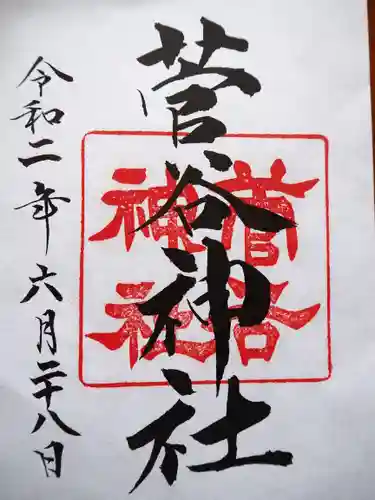 菅谷神社
令和二年六月二十八日
菅谷
神社